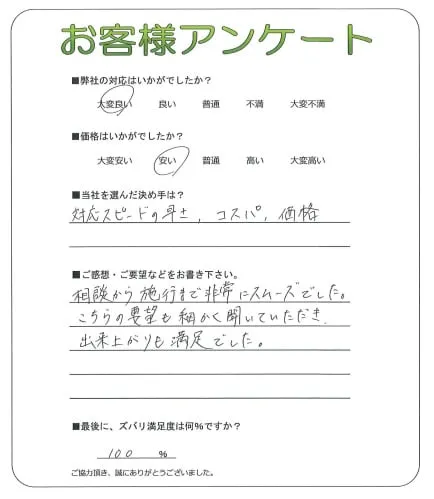 お客様アンケート
■弊社の対応はいかがでしたか？
大変良い 良い 普通 不満 大変不満
■価格はいかがでしたか？
大変安い 安い 普通 高い 大変高い
■当社を選んだ決め手は？
対応スピードの早さ，コスパ，価格
■ご感想・ご要望などをお書き下さい。
相談から施行まで非常にスムーズでした。
こちらの要望も細かく聞いていただき
出来上がりも満足でした。
■最後に、ズバリ満足度は何％ですか？
100 ％
ご協力頂き、誠にありがとうございました。